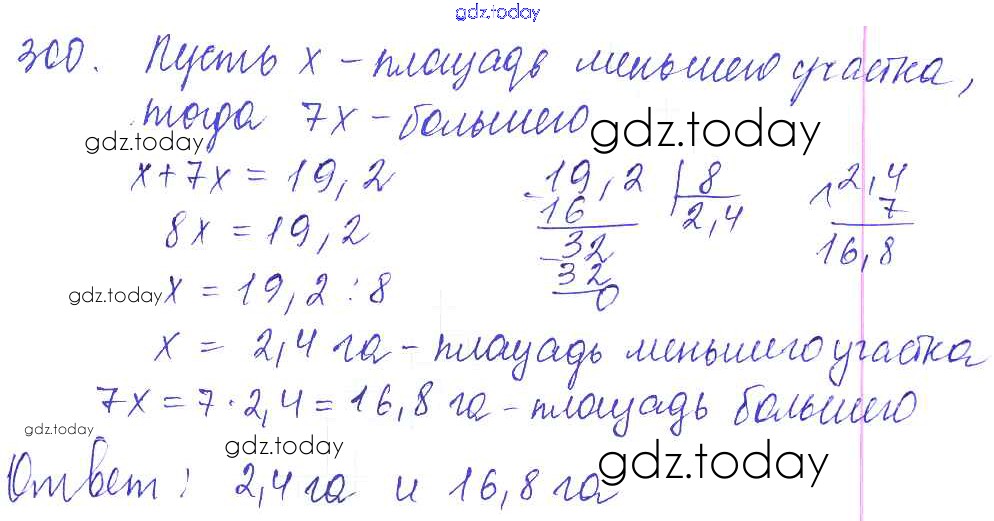 gdz.today
300. Пусть x – площадь меньшего участка,
тогда 7x – большего
gdz.today gdz.today
x + 7x = 19,2
8x = 19,2
gdz.today x = 19,2 : 8
19,2 | 8
16 2,4
32
32
0
2,4
7
16,8
x = 2,4 га – площадь меньшего участка
7x = 7 · 2,4 = 16,8 га – площадь большего
gdz.today gdz.today gdz.today
Ответ: 2,4 га и 16,8 га